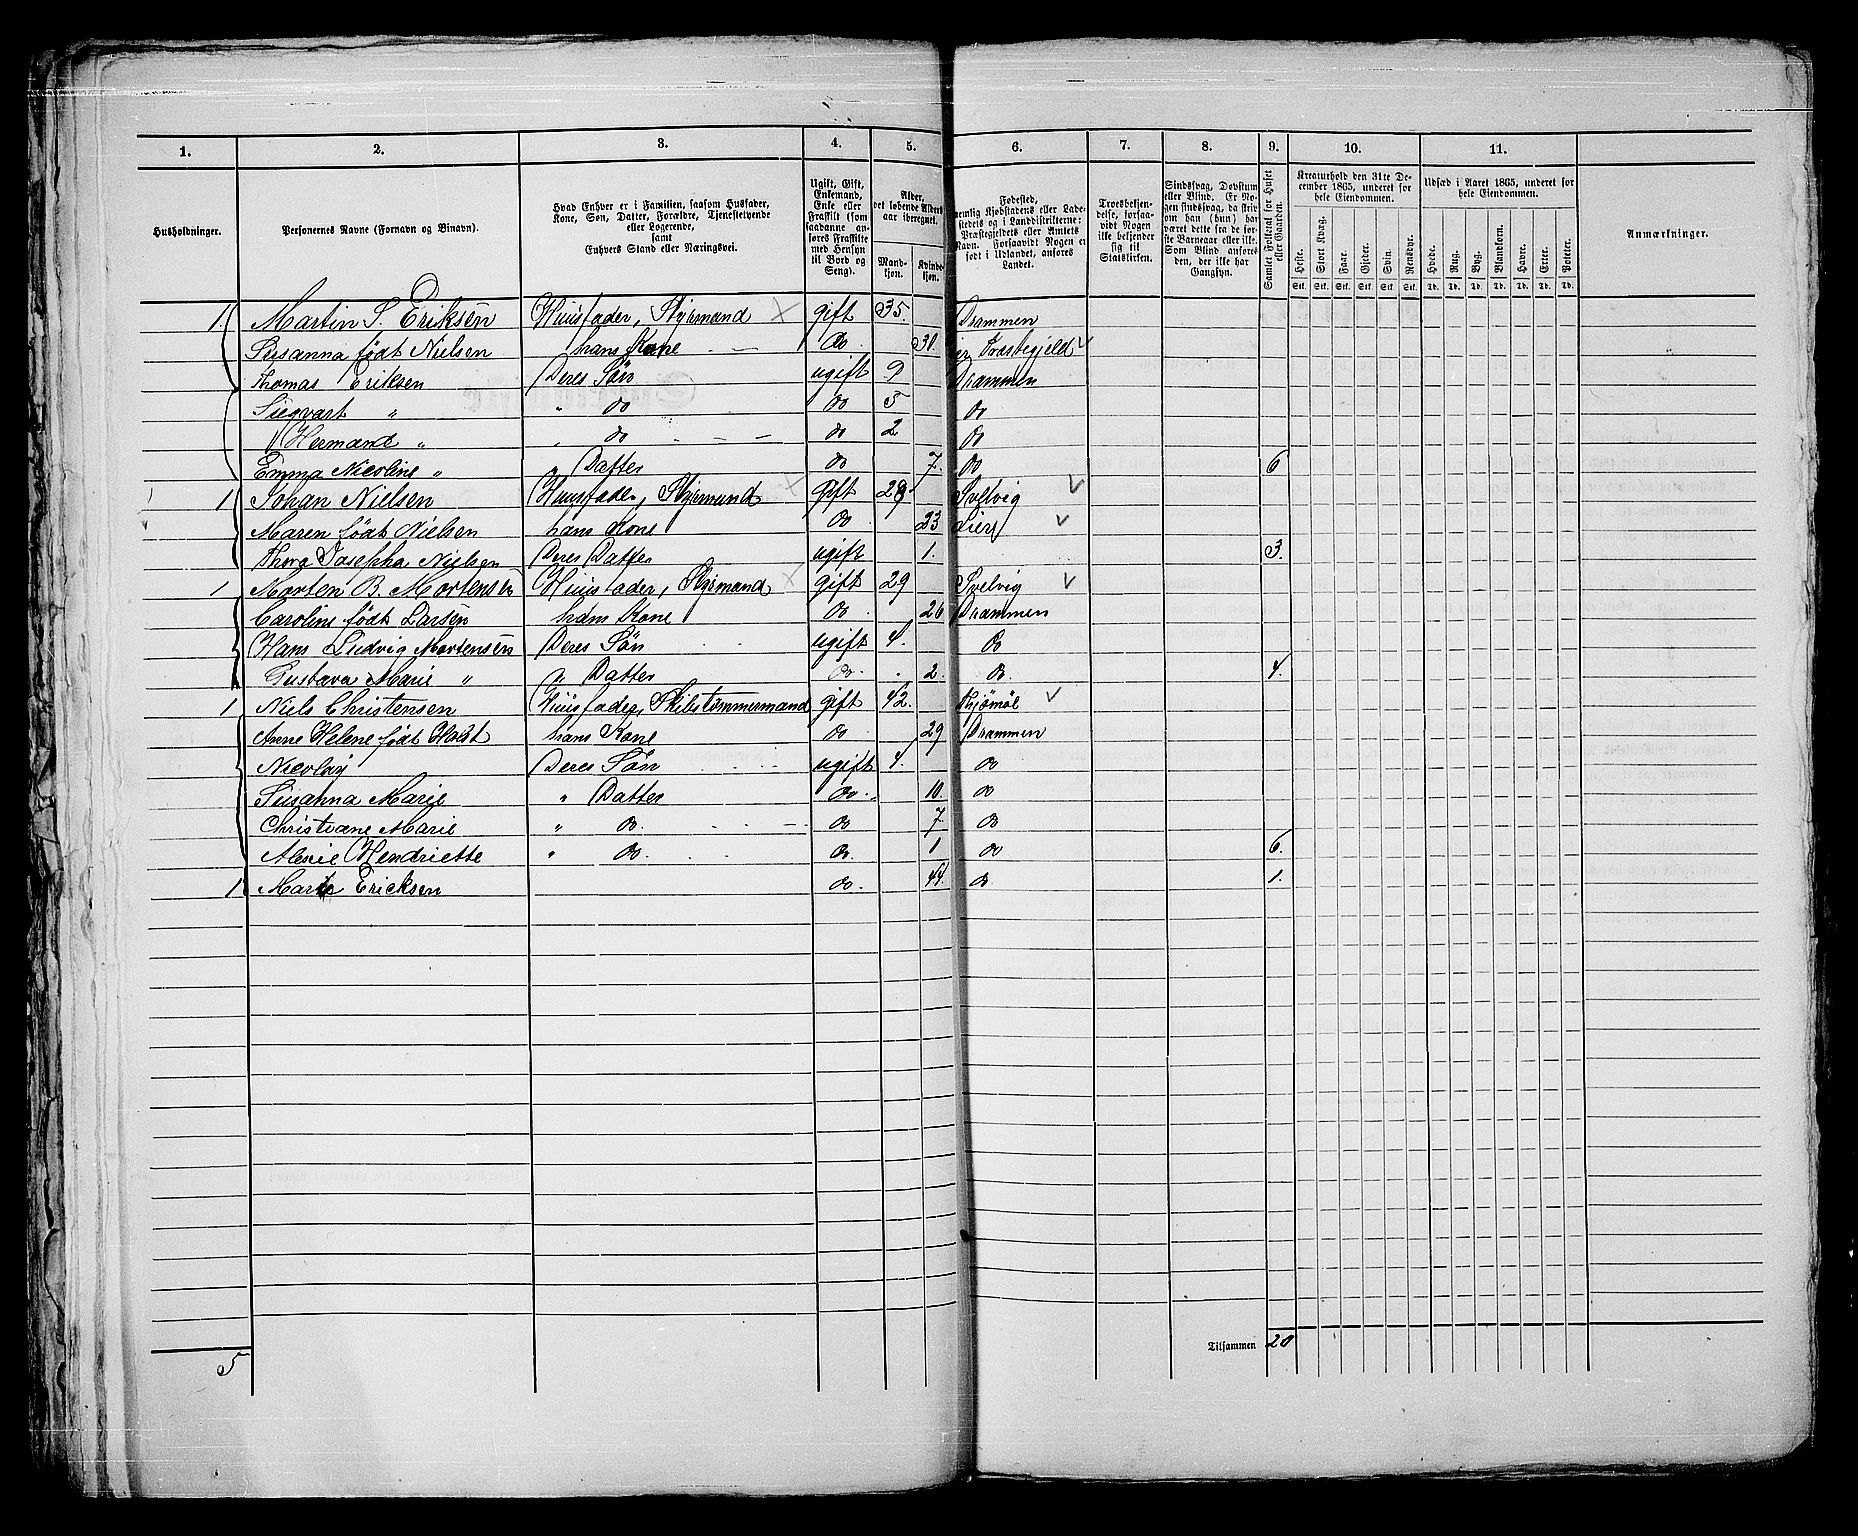 1. 2. 3. 4. 5. 6. 7. 8. 9. 10. 11.
Husholdninger.
Personernes Navne (Fornavn og Binavn).
Hvad Enhver er i Familien, saasom Husfader,
Kone, Søn, Datter, Forældre, Tjenestetyende
eller Logerende,
samt
Enhvers Stand eller Næringsvei.
Ugift, Gift,
Enkemand,
Enke eller
Fraskilt (som
saadanne an-
føres Fraskilte
med Hensyn
til Bord og
Seng).
Alder,
det løbende Alders-
aar iberegnet.
Mand-
kjøn.
Kvinde-
kjøn.
Fødested,
nemlig Kjøbstadens eller Lade-
stedets og i Landdistrikterne:
Præstegjeldets eller Amtets
Navn. Forsaavidt Nogen er
født i Udlandet, anføres
Landet.
Troesbekjen-
delse, forsaa-
vidt Nogen
ikke bekjender
sig til
Statskirken.
Sindssvag, Døvstum
eller Blind. Er No-
gen sindssvag, da skriv
om han (hun) har
været dette fra de før-
ste Barneaar eller ikke.
Som Blind anføres
den, der ikke har
Gangsyn.
Samlet Folketal for Huset
eller Gaarden.
Kreaturhold den 31te De-
cember 1865, underet for
hele Eiendommen.
Heste. Stort Kvæg. Faar. Gjeder. Svin. Rensdyr.
Stk. Stk. Stk. Stk. Stk. Stk.
Udsæd i Aaret 1865, underet for
hele Eiendommen.
Hvede. Rug. Byg. Blandkorn. Havre. Erter. Poteter.
Td. Td. Td. Td. Td. Td. Td.
Anmærkninger.
1. Martin S. Eriksen Huusfader, Styrmand gift 35. Drammen
Susanna født Nielsen hans Kone Do 30. Præstegjeld
Thomas Eriksen Deres Søn ugift 9 Drammen
Siegvart " " do do 5 do
Hermand " " do do 2 do
Emma Nicoline " " Datter do 7. do 6
1 Johan Nielsen Huusfader, Styrmand gift 28 Svelvig
Maren født Nielsen hans Kone do 23 Liers
Thora Josepha Nielsen Deres Datter ugift 1. 3.
1 Morten B. Mortensen Huusfader, Styrmand gift 29 Svelvig
Caroline født Larsen hans Kone do 26 Drammen
Hans Ludvig Mortensen Deres Søn ugift 4. do
Gustava Marie " " Datter do 2. do. 4.
1 Niels Christensen Huusfader, Skibstømmermand gift 42. Thjømøl
Anne Helene født Holst hans Kone do 29 Drammen
Nicolay Deres Søn ugift 4. do
Susanna Marie " Datter do 10. do
Christiane Marie " do. do 7. do
Alexie Hendriette " do. do. 1 do 6.
1. Marte Ericksen do. 44. do 1.
Tilsammen 20
5